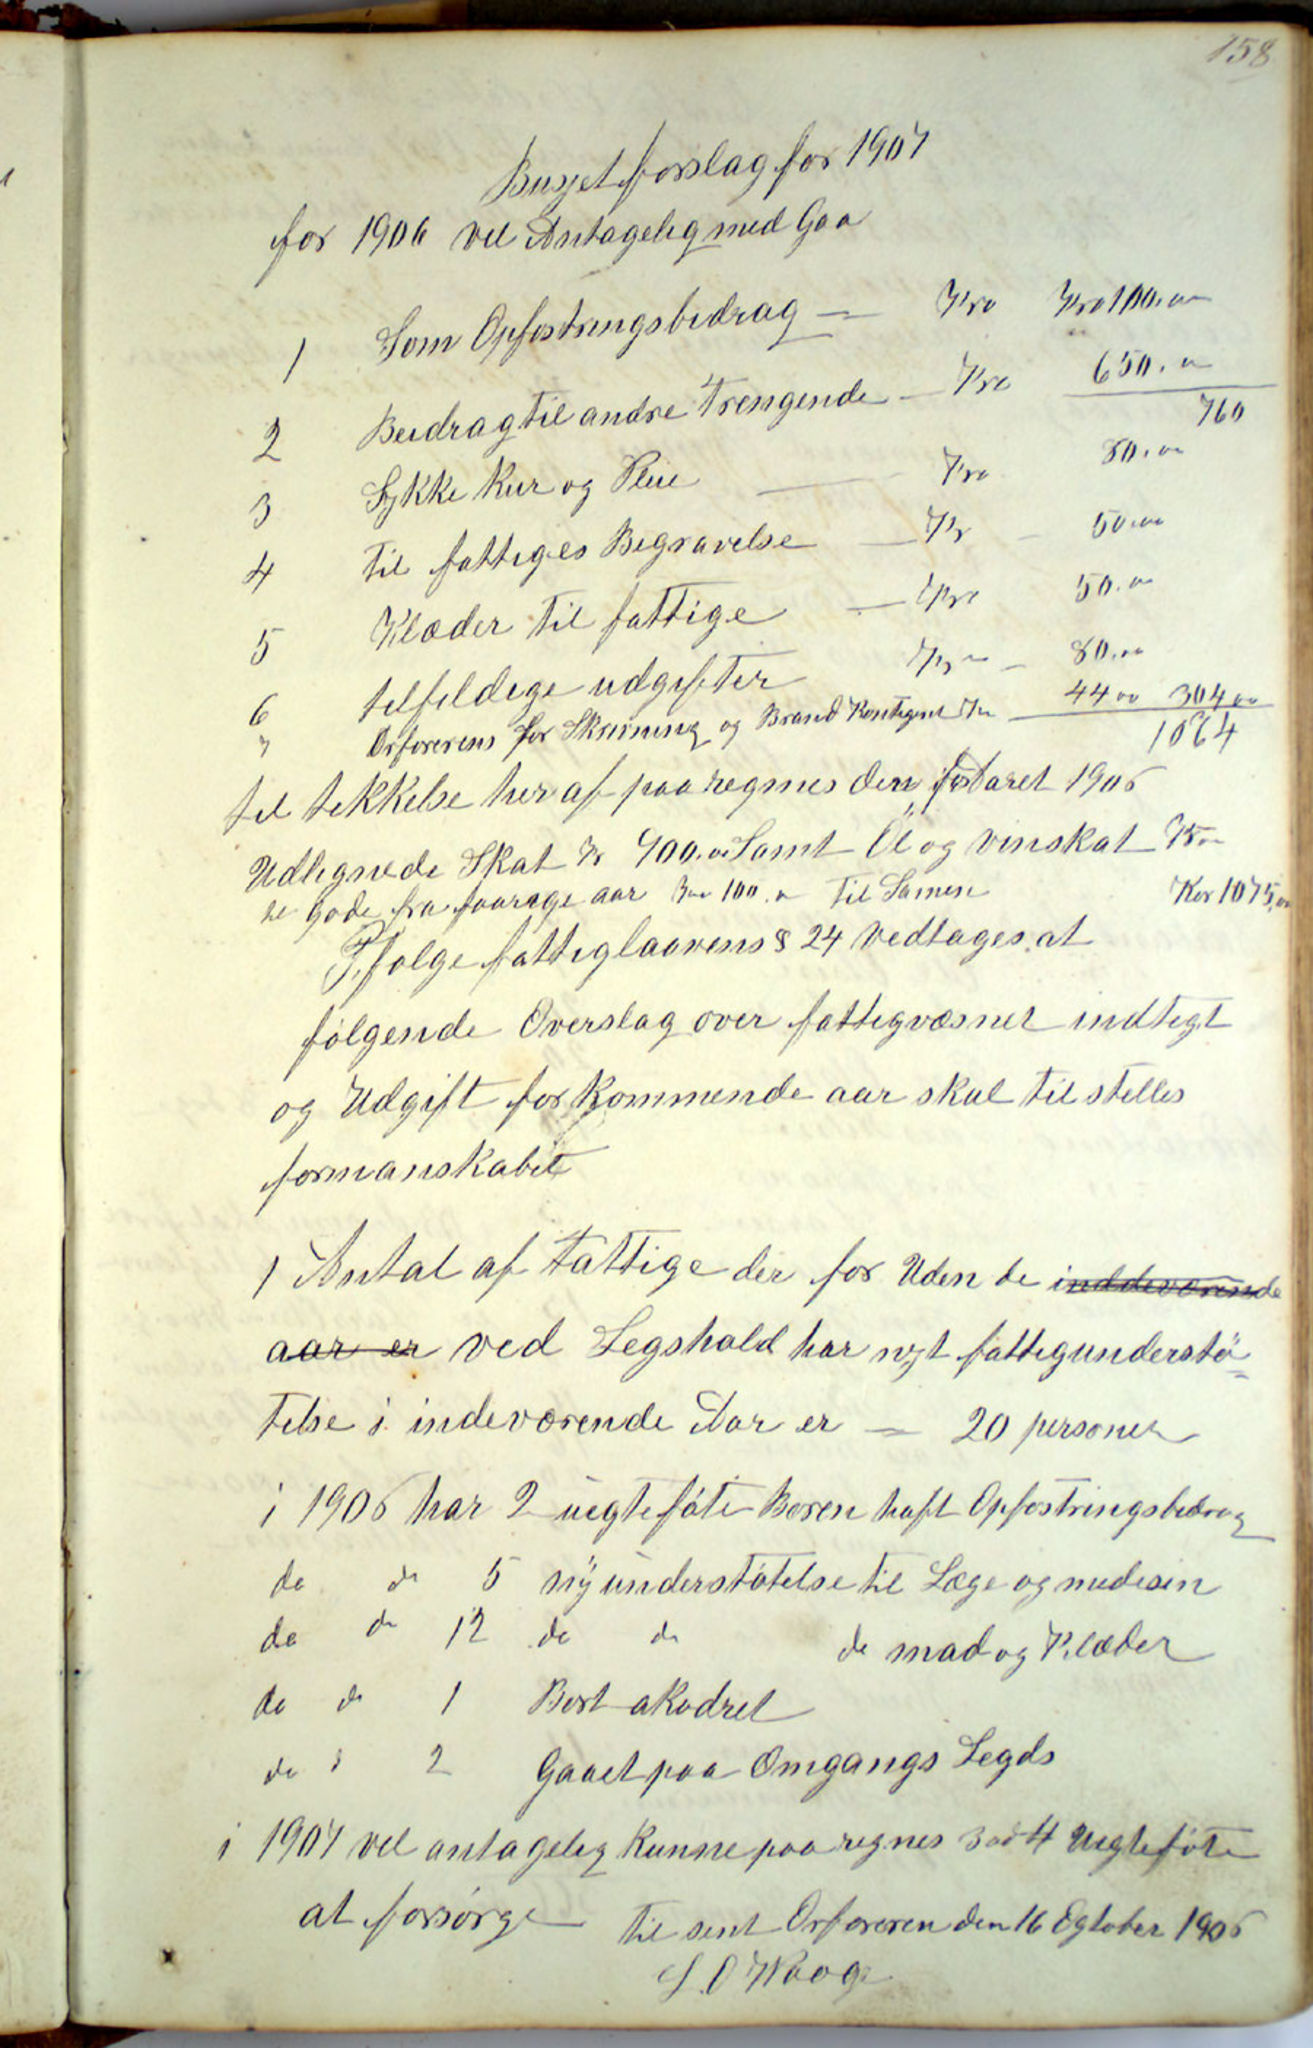 158
Busjet forslag for 1907
for 1906 vil Antagelig med Gaa
1 Som Opfostringsbedrag — Kro Kro 100.00
2 Beidrag til andre Trengende — Kro 650.00
760
3 Sykke kur og Pleie — Kro 80.00
4 til fattiges Begravelse — Kr — 50.00
5 Klæder til fattige — Kro 50.00
6 tilfeldige udgifter Kr — 80.00
7 Orforerens for Skrivning og Brand Kontigent Kr — 44 00 304 00
1064
til tekkelse her af paa regnes den for aaret 1906
Udlignede Skat Kr 900.00 Samt Öl og vinskat 75 00
te gode fra foorrige aar 100.00 Til Samen Kor 1075.00
Ifølge fattiglaavens § 24 vedtages at
følgende Overslag over fattigvæsnet indtegt
og Udgift for kommende aar skal til stelles
formanskabet
1 Antal af Fattige der for Uden de inddeværende
aar er ved Legshold har nyt fattigunderstö=
telse i indeværende Aar er — 20 personer
i 1906 har 2 uegtefóte Boren haft Opfostringsbedrag
do do 5 ny understötelse til Læge og medesin
do do 12 do do do mad og Klæder
do do 1 Bort akodret
do do 2 Gaaet paa Omgangs Legds
i 1907 vil antagelig kunne paa regnes 3 ad 4 Uegteföte
at forsörge Til sent Orforeren den 16 Ogtober 1906